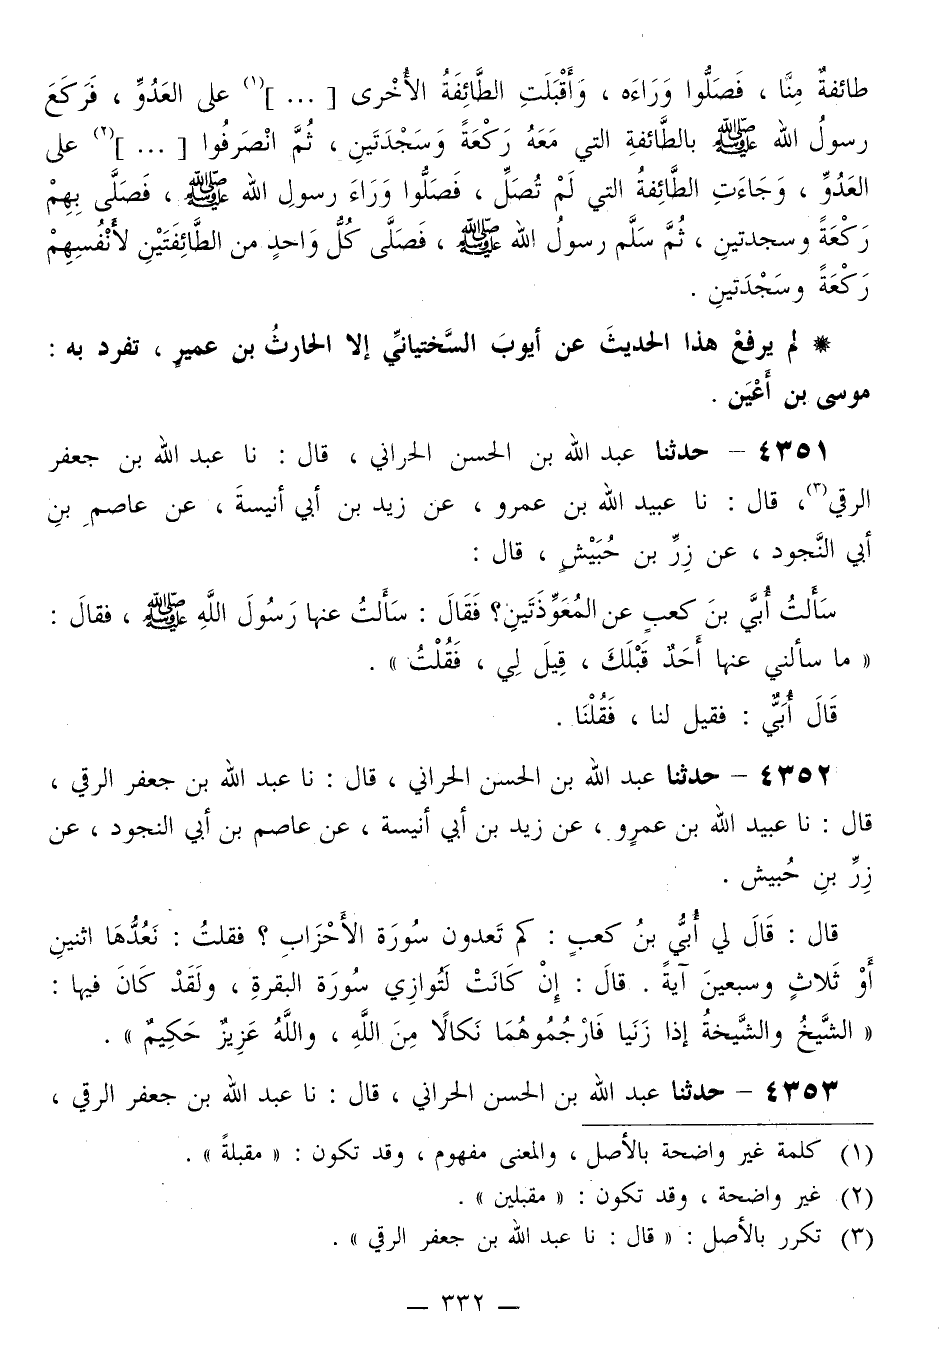 طائفةٌ مِنَّا ، فَصَلُّوا وَرَاءَه ، وَأَقْبَلَتِ الطَّائِفَةُ الأُخْرى [ ... ](١) على العَدُوِّ ، فَرَكَعَ
رسولُ الله ﷺ بالطَّائفةِ التي مَعَهُ رَكْعَةً وَسَجْدَتَينِ ، ثُمَّ انْصَرفُوا [ ... ](٢) على
العَدُوِّ ، وَجَاءَتِ الطَّائِفةُ التي لَمْ تُصَلِّ ، فَصَلُّوا وَرَاءَ رسولِ الله ﷺ ، فَصلَّى بِهِمْ
رَكْعَةً وسجدتينِ ، ثُمَّ سَلَّم رسولُ الله ﷺ ، فَصَلَّى كُلُّ وَاحدٍ من الطَّائِفَتَيْنِ لأَنْفُسِهِمْ
رَكْعَةً وسَجْدَتينِ .
* لم يرفعْ هذا الحديثَ عن أيوبَ السَّختيانيِّ إلا الحارثُ بن عميرٍ ، تفرد به :
موسى بن أَعْيَن .
٤٣٥١ – حدثنا عبد الله بن الحسن الحراني ، قال : نا عبد الله بن جعفر
الرقي(٣)، قال : نا عبيد الله بن عمرو ، عن زيد بن أبي أنيسةَ ، عن عاصمِ بنِ
أبي النَّجود ، عن زِرِّ بن حُبَيْشٍ ، قال :
سَأَلتُ أُبَيَّ بنَ كعبٍ عن المُعَوِّذَتَينِ؟ فَقَالَ : سَأَلتُ عنها رَسُولَ اللَّهِ ﷺ ، فقالَ :
« ما سألني عنها أَحَدٌ قَبْلَكَ ، قِيلَ لِي ، فَقُلْتُ » .
قَالَ أُبَيٌّ : فقيل لنا ، فَقُلْنَا .
٤٣٥٢ – حدثنا عبد الله بن الحسن الحراني ، قال : نا عبد الله بن جعفر الرقي ،
قال : نا عبيد الله بن عمرٍو ، عن زيد بن أبي أنيسة ، عن عاصم بن أبي النجود ، عن
زِرِّ بنِ حُبيش .
قال : قَالَ لي أُبيُّ بنُ كعبٍ : كم تَعدون سُورَة الأَحْزَابِ ؟ فقلتُ : نَعُدُّهَا اثنينِ
أَوْ ثَلاثٍ وسبعينَ آيةً . قالَ : إِنْ كَانَتْ لَتُوازِي سُورَة البقرةِ ، ولَقَدْ كَانَ فيها :
« الشَّيْخُ والشَّيخةُ إذا زَنَيا فَارْجُمُوهُمَا نَكالًا مِنَ اللَّهِ ، واللَّهُ عَزِيزٌ حَكِيمٌ » .
٤٣٥٣ – حدثنا عبد الله بن الحسن الحراني ، قال : نا عبد الله بن جعفر الرقي ،
(١) كلمة غير واضحة بالأصل ، والمعنى مفهوم ، وقد تكون : « مقبلةً » .
(٢) غير واضحة ، وقد تكون : « مقبلين » .
(٣) تكرر بالأصل : « قال : نا عبد الله بن جعفر الرقي » .
– ٣٣٢ –